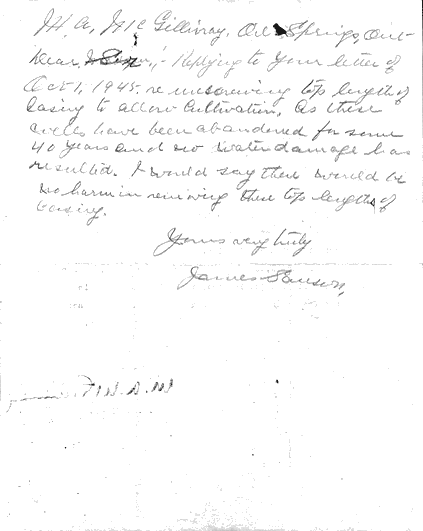 W. A. McGillivray, Oil Springs, Ont
Dear Sir,:- Replying to your letter of
Oct 1, 1945. re unscrewing top length of
casing to allow cultivation, As these
wells have been abandoned for some
40 years and no water damage has
resulted. I would say there would be
no harm in removing these top lengths of
casing.
Yours very truly
James